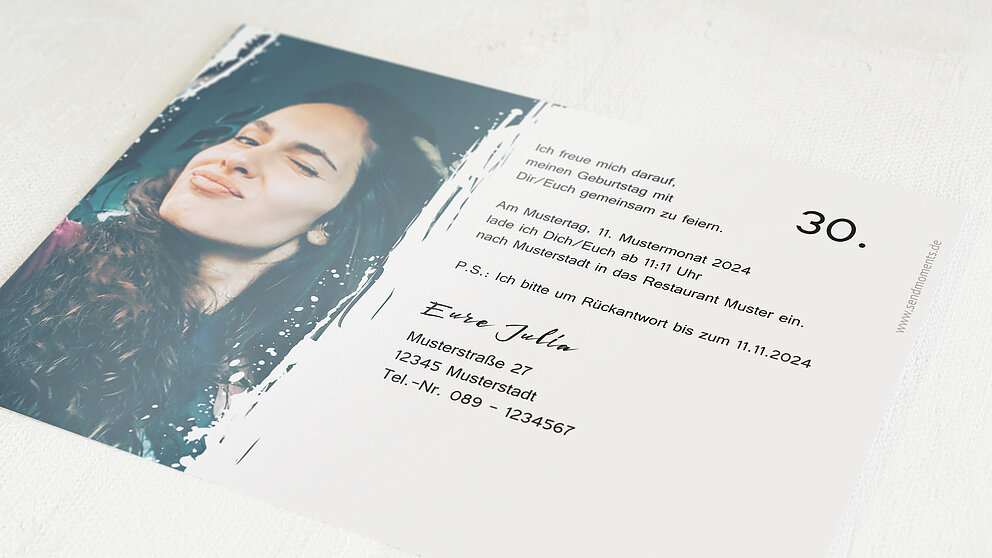 Ich freue mich darauf,
meinen Geburtstag mit
Dir/Euch gemeinsam zu feiern.
30.
Am Mustertag, 11. Mustermonat 2024
lade ich Dich/Euch ab 11:11 Uhr
nach Musterstadt in das Restaurant Muster ein.
P.S.: Ich bitte um Rückantwort bis zum 11.11.2024
Eure Julia
Musterstraße 27
12345 Musterstadt
Tel.-Nr. 089 - 1234567
www.sendmoments.de